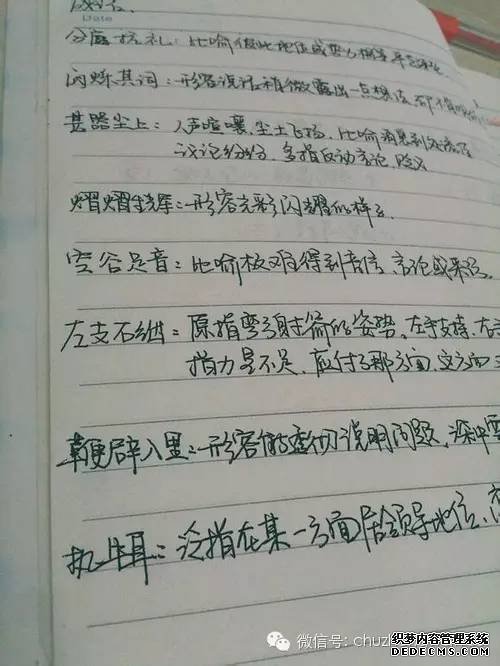 成语.
Date
分庭抗礼: 比喻彼此地位或势力相等,平起平坐
闪烁其词: 形容说话稍微露出一点想法,却不肯
甚嚣尘上: 人声喧嚷,尘土飞扬. 比喻消息到处流传
议论纷纷. 多指反动言论. 贬义
熠熠生辉: 形容光彩闪耀的样子.
空谷足音: 比喻极难得到音信、言论或来访.
左支右绌: 原指弯弓射箭的姿势, 左手支持, 右手
指力量不足, 应付了那方面, 这方面
鞭辟入里: 形容能透彻说明问题, 深中要
执牛耳: 泛指在某一方面居领导地位,
微信号: chuz
织梦内容管理系统
DEDECMS.COM